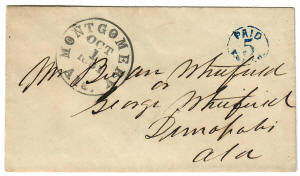 MONTGOMERY
OCT
1
ALA.
PAID
5
Mr. Bryan Whitfield
or
George Whitfield
Demopolis
Ala